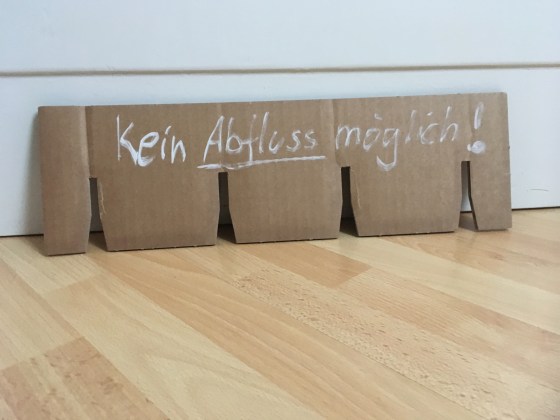 Kein Abfluss möglich!